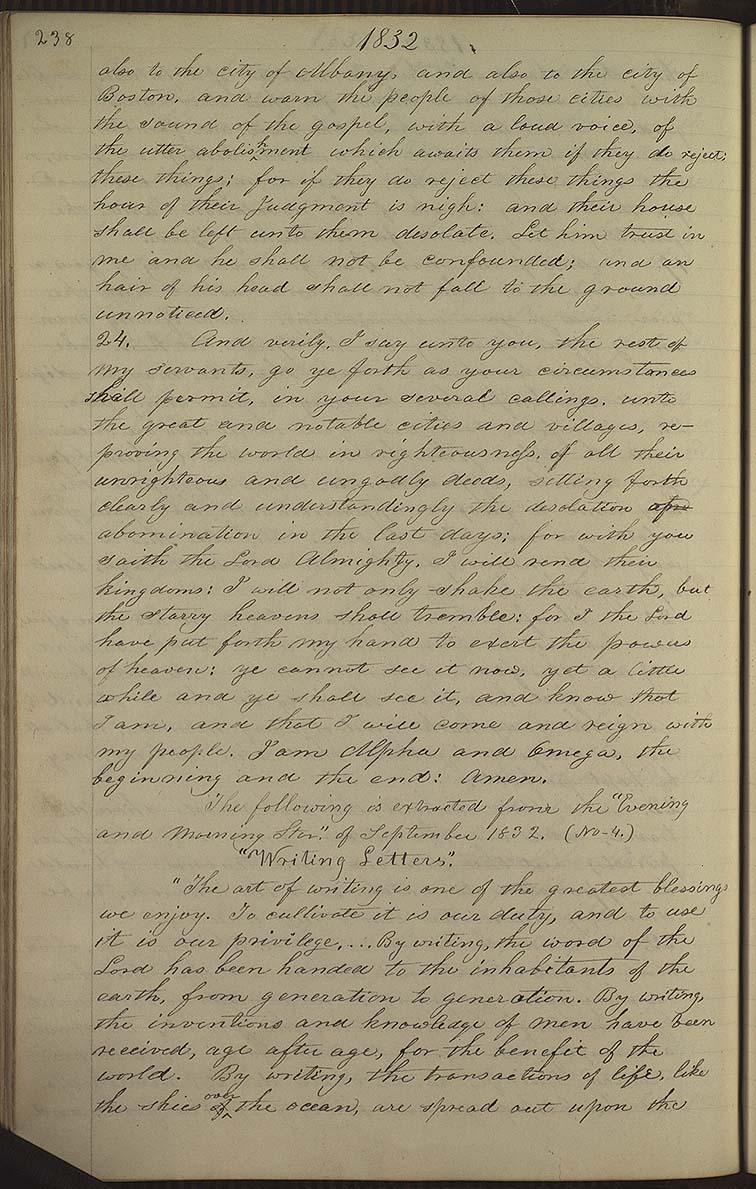 238
1832
also to the city of Albany, and also to the city of
Boston, and warn the people of those cities with
the sound of the gospel, with a loud voice, of
the utter abolishment which awaits them if they do reject
these things; for if they do reject these things the
hour of their Judgment is nigh: and their house
shall be left unto them desolate. Let him trust in
me and he shall not be confounded; and an
hair of his head shall not fall to the ground
unnoticed.
24. And verily, I say unto you, the rest of
my servants, go ye forth as your circumstances
shall permit, in your several callings, unto
the great and notable cities and villages, re-
proving the world in righteousness, of all their
unrighteous and ungodly deeds, setting forth
clearly and understandingly the desolation of
abomination in the last days; for with you
saith the Lord Almighty, I will rend their
kingdoms: I will not only shake the earth, but
the starry heavens shall tremble: for I the Lord
have put forth my hand to exert the powers
of heaven: ye cannot see it now, yet a little
while and ye shall see it, and know that
I am, and that I will come and reign with
my people. I am Alpha and Omega, the
beginning and the end: Amen.
The following is extracted from the "Evening
and Morning Star". of September 1832. (No-4.)
"Writing Letters".
"The art of writing is one of the greatest blessings
we enjoy. To cultivate it is our duty, and to use
it is our privilege,... By writing, the word of the
Lord has been handed to the inhabitants of the
earth, from generation to generation. By writing,
the inventions and knowledge of men have been
received, age after age, for the benefit of the
world. By writing, the transactions of life, like
the skies over the ocean, are spread out upon the